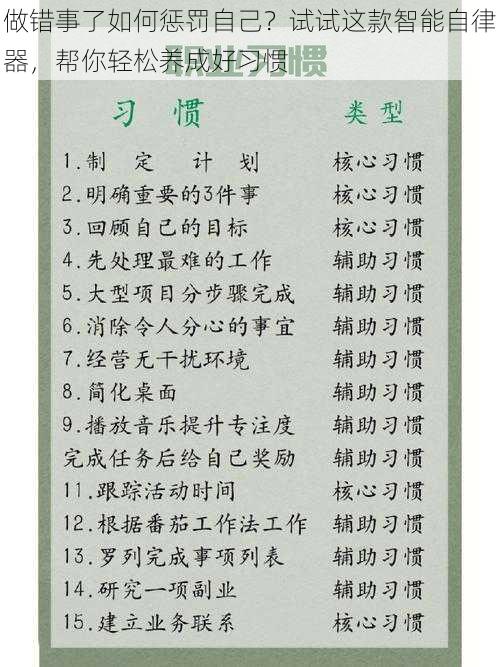 做错事了如何惩罚自己？试试这款智能自律
器，帮你轻松养成好习惯
职业习惯
习 惯 类型
1.制 定 计 划 核心习惯
2.明确重要的3件事 核心习惯
3.回顾自己的目标 核心习惯
4.先处理最难的工作 辅助习惯
5.大型项目分步骤完成 辅助习惯
6.消除令人分心的事宜 辅助习惯
7.经营无干扰环境 辅助习惯
8.简化桌面 辅助习惯
9.播放音乐提升专注度 辅助习惯
完成任务后给自己奖励 辅助习惯
11.跟踪活动时间 核心习惯
12.根据番茄工作法工作 辅助习惯
13.罗列完成事项列表 辅助习惯
14.研究一项副业 辅助习惯
15.建立业务联系 核心习惯